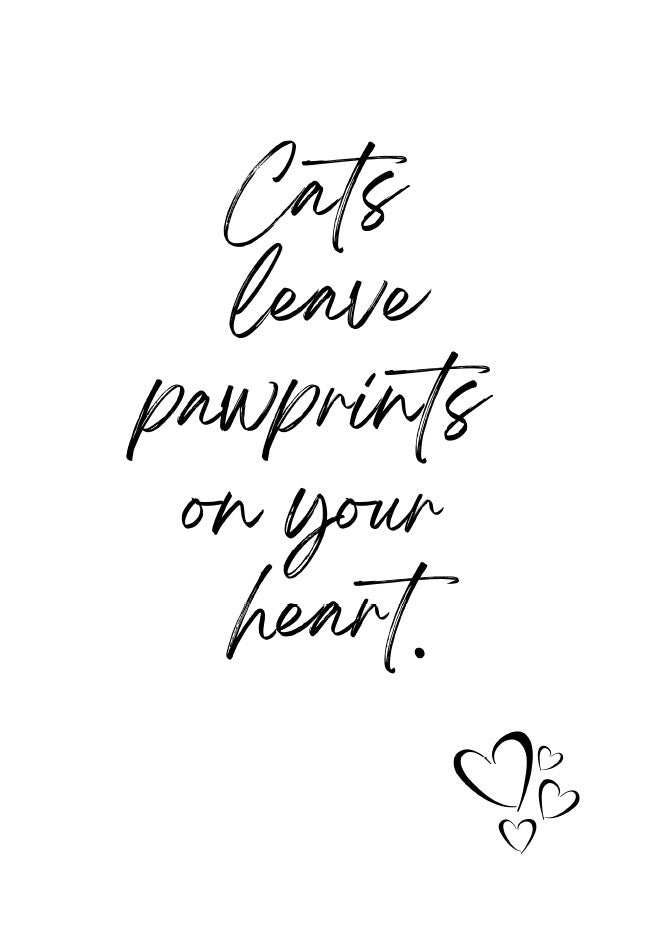 Cats
leave
pawprints
on your
heart.